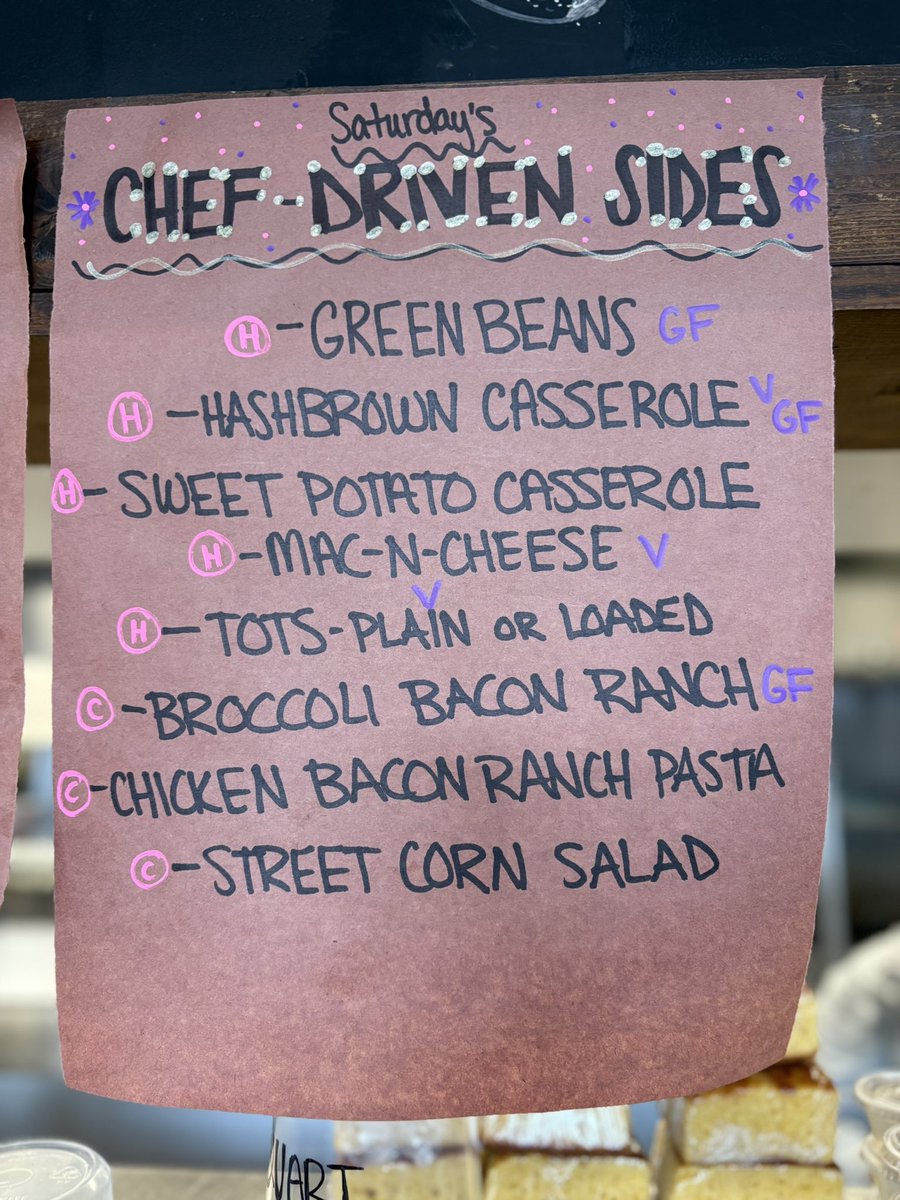 Saturday's
CHEF-DRIVEN SIDES
H - GREEN BEANS GF
H - HASHBROWN CASSEROLE V GF
H - SWEET POTATO CASSEROLE
H - MAC-N-CHEESE V
H - TOTS - PLAIN V OR LOADED
C - BROCCOLI BACON RANCH GF
C - CHICKEN BACON RANCH PASTA
C - STREET CORN SALAD